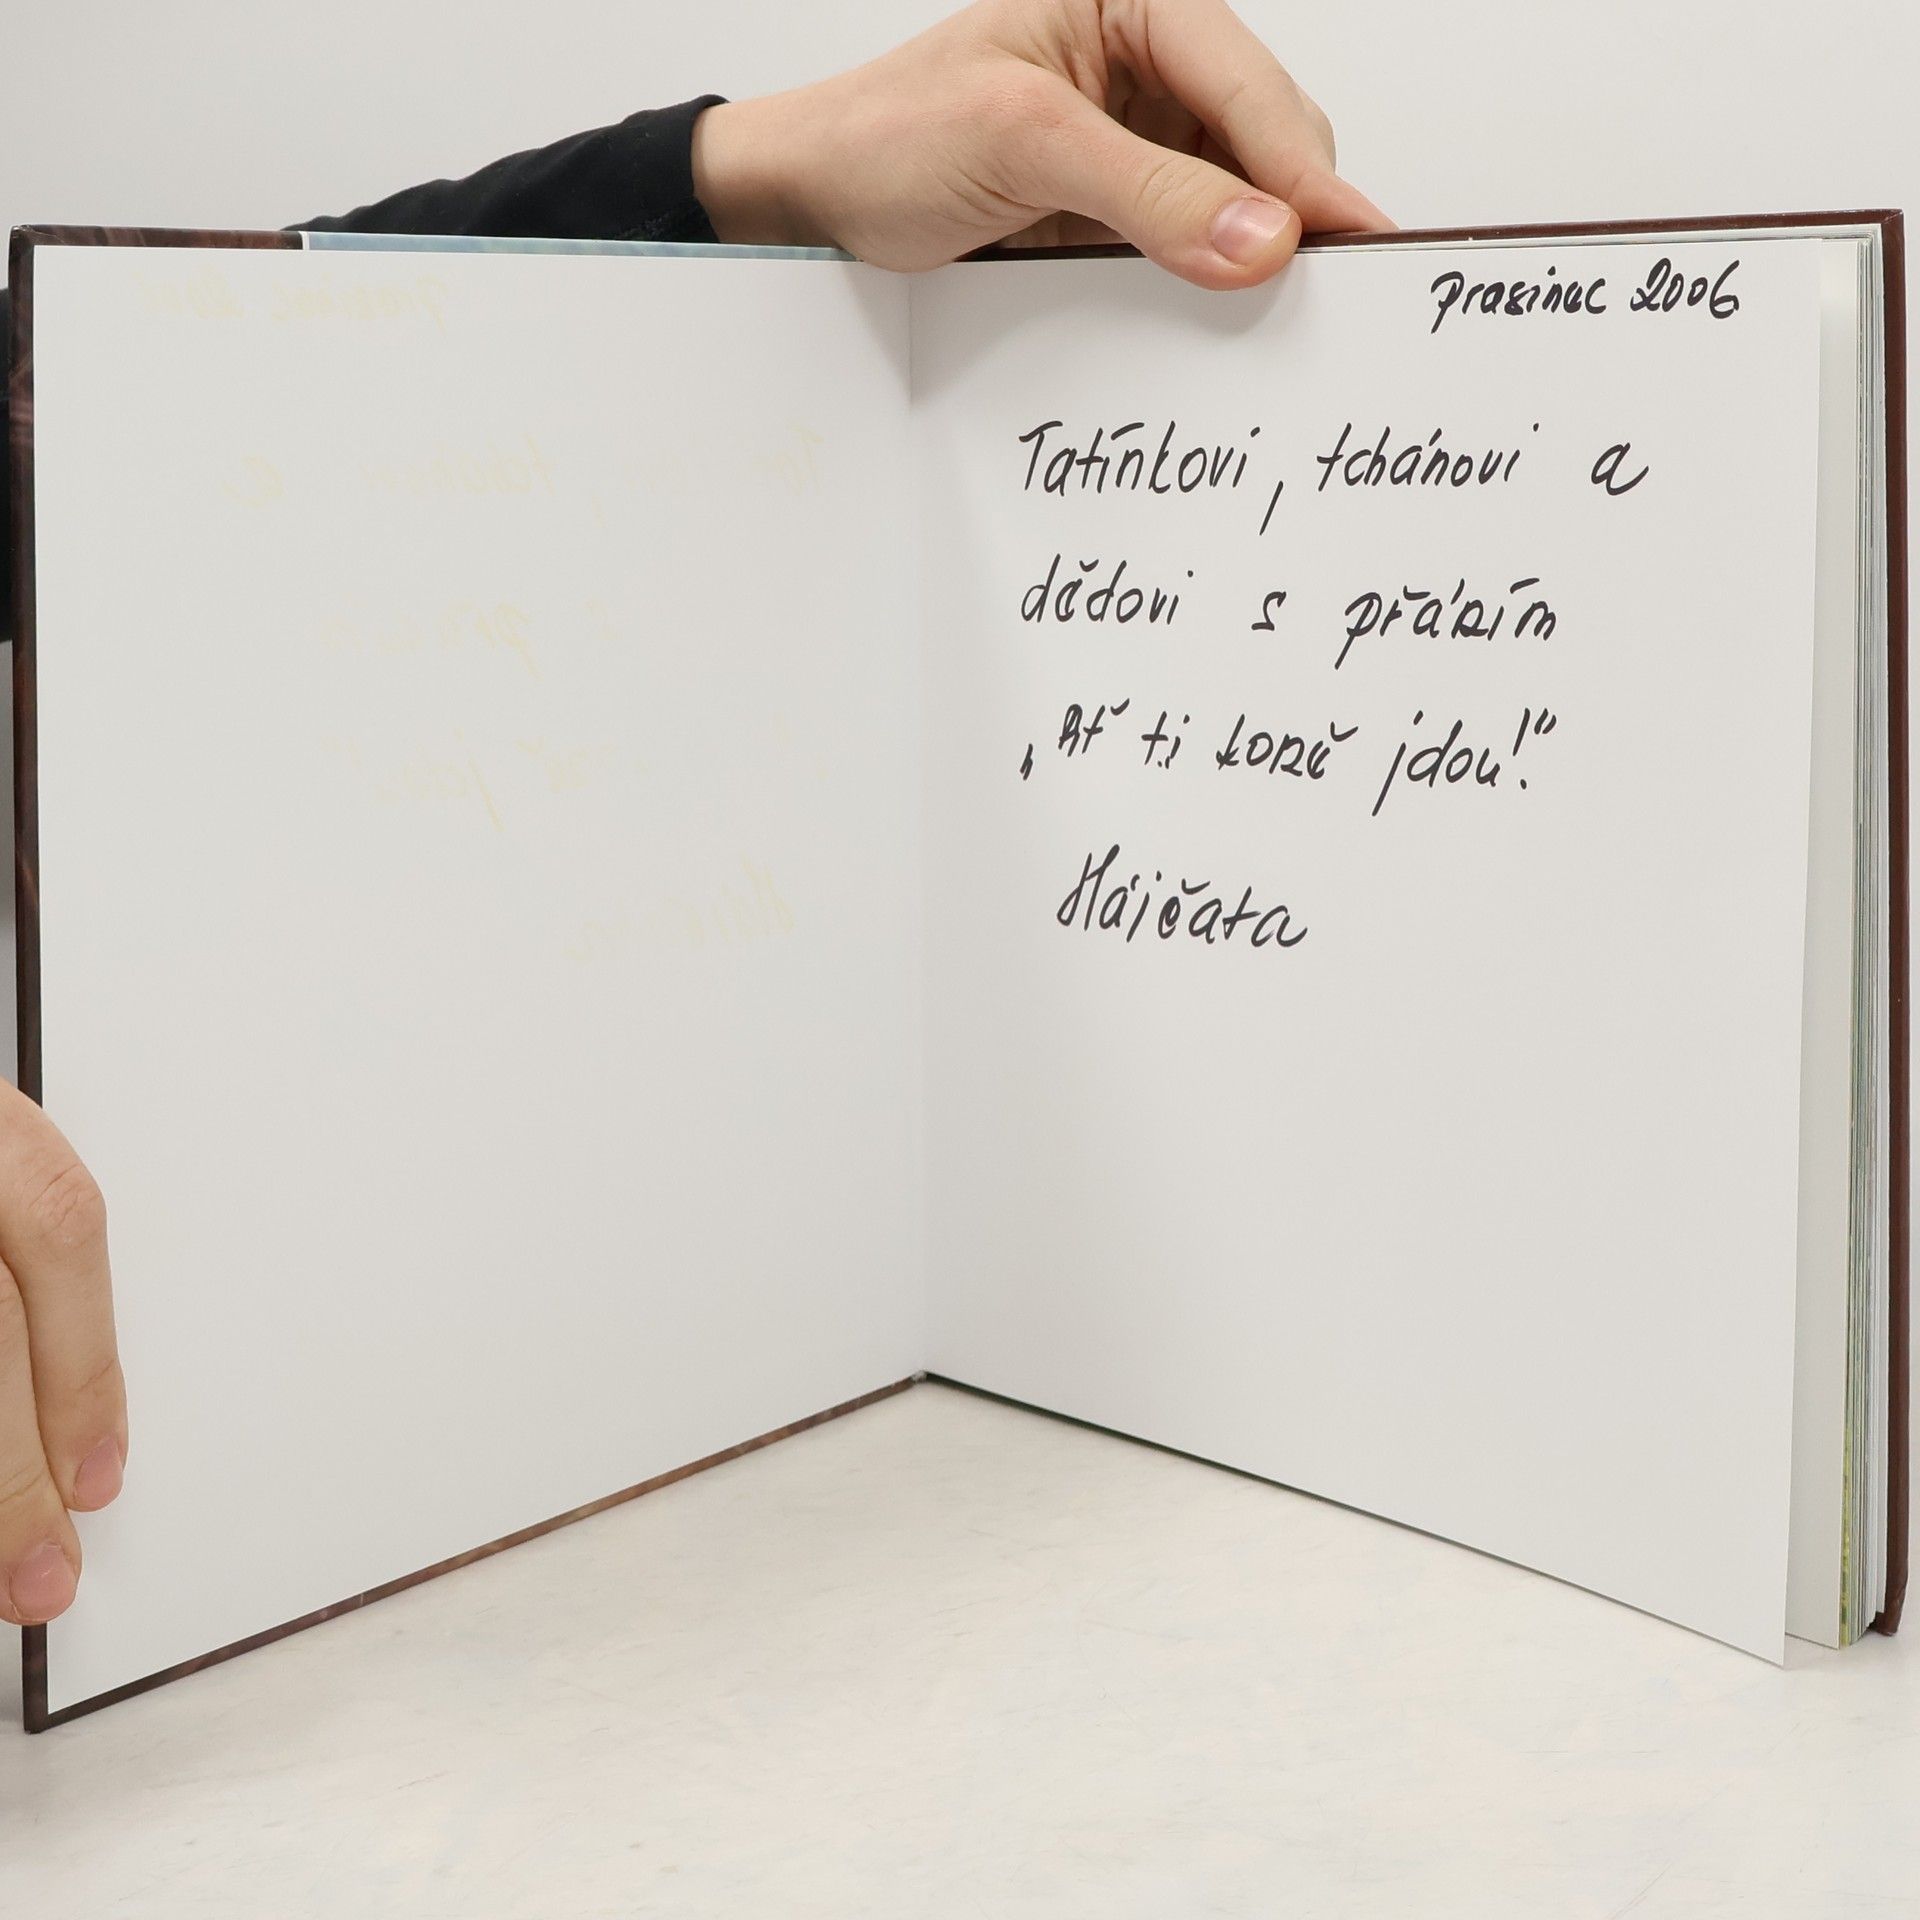 prosinec 2006
Tatínkovi, tchánovi a
dědovi s přáním
„Ať ti koně jdou!“
Hájčata